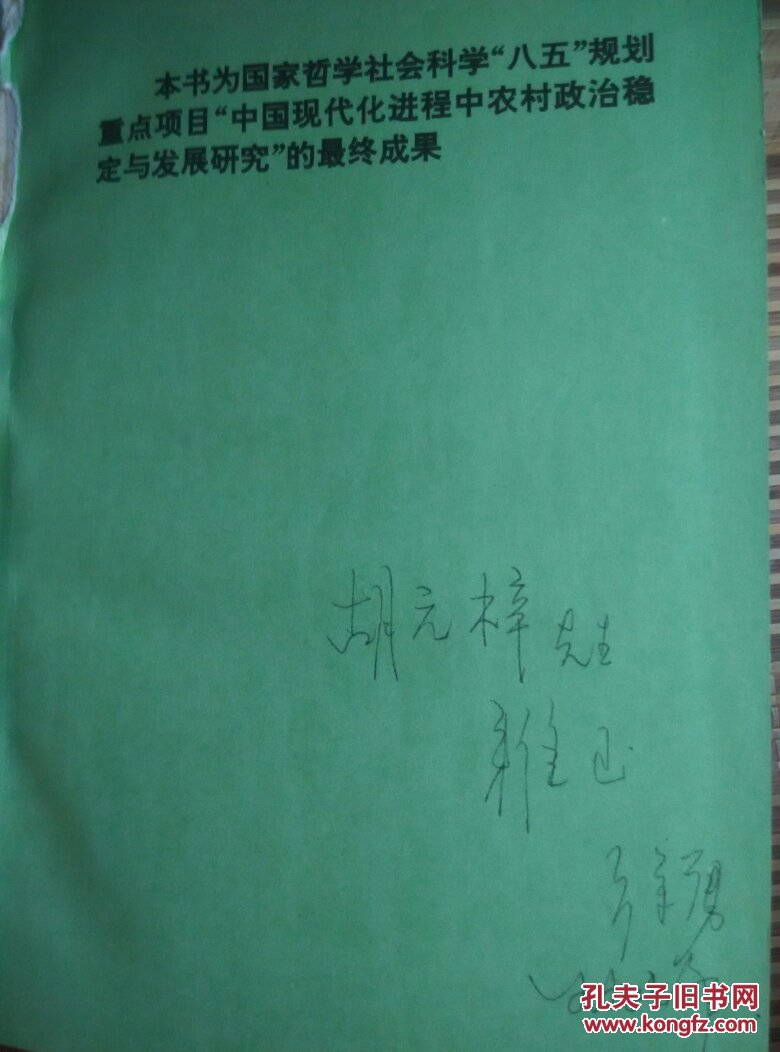 本书为国家哲学社会科学“八五”规划
重点项目“中国现代化进程中农村政治稳
定与发展研究”的最终成果
胡元梓 先生
雅正
徐勇
孔夫子旧书网
www.kongfz.com